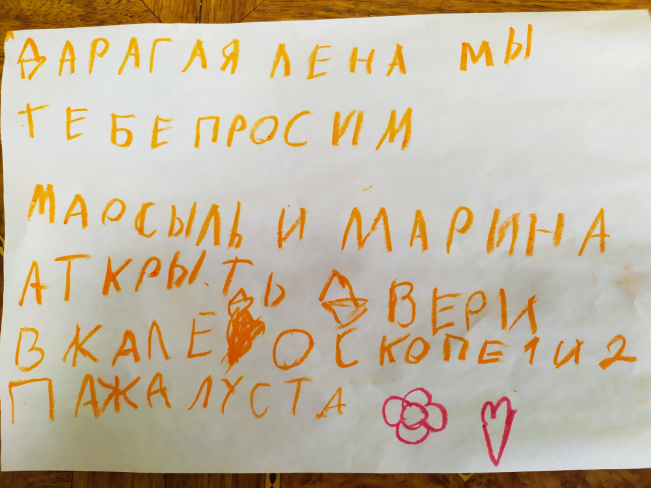 ДАРАГАЯ ЛЕНА МЫ
ТЕБЕ ПРОСИМ
МАРСЫЛЬ И МАРИНА
АТКРЫТЬ ДВЕРИ
В ЖАЛЕОСКОПЕ 1 И 2
ПАЖАЛУСТА